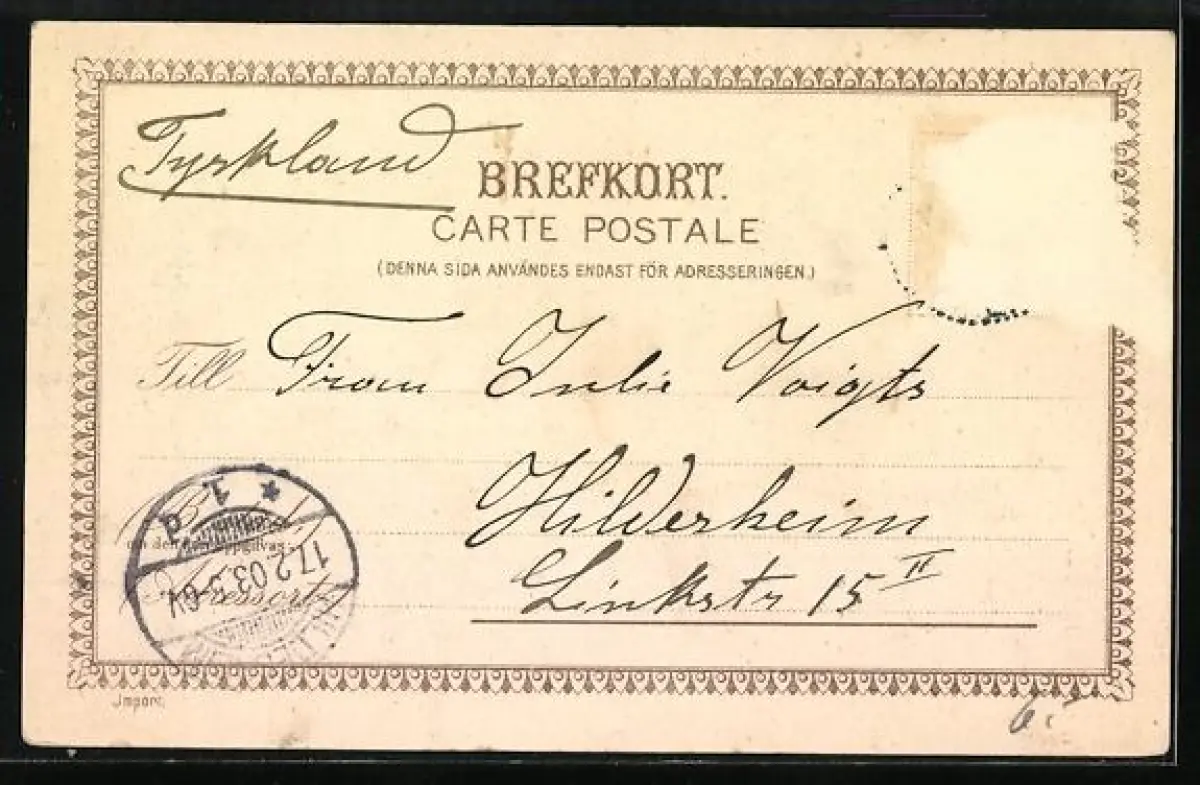 Tyskland
BREFKORT.
CARTE POSTALE
(DENNA SIDA ANVÄNDES ENDAST FÖR ADRESSERINGEN.)
Till Frau Julie Voigts
Hildesheim
Linkstr 15 II
* 1. d
17.2.03.5-6V.
Adressort
Import.